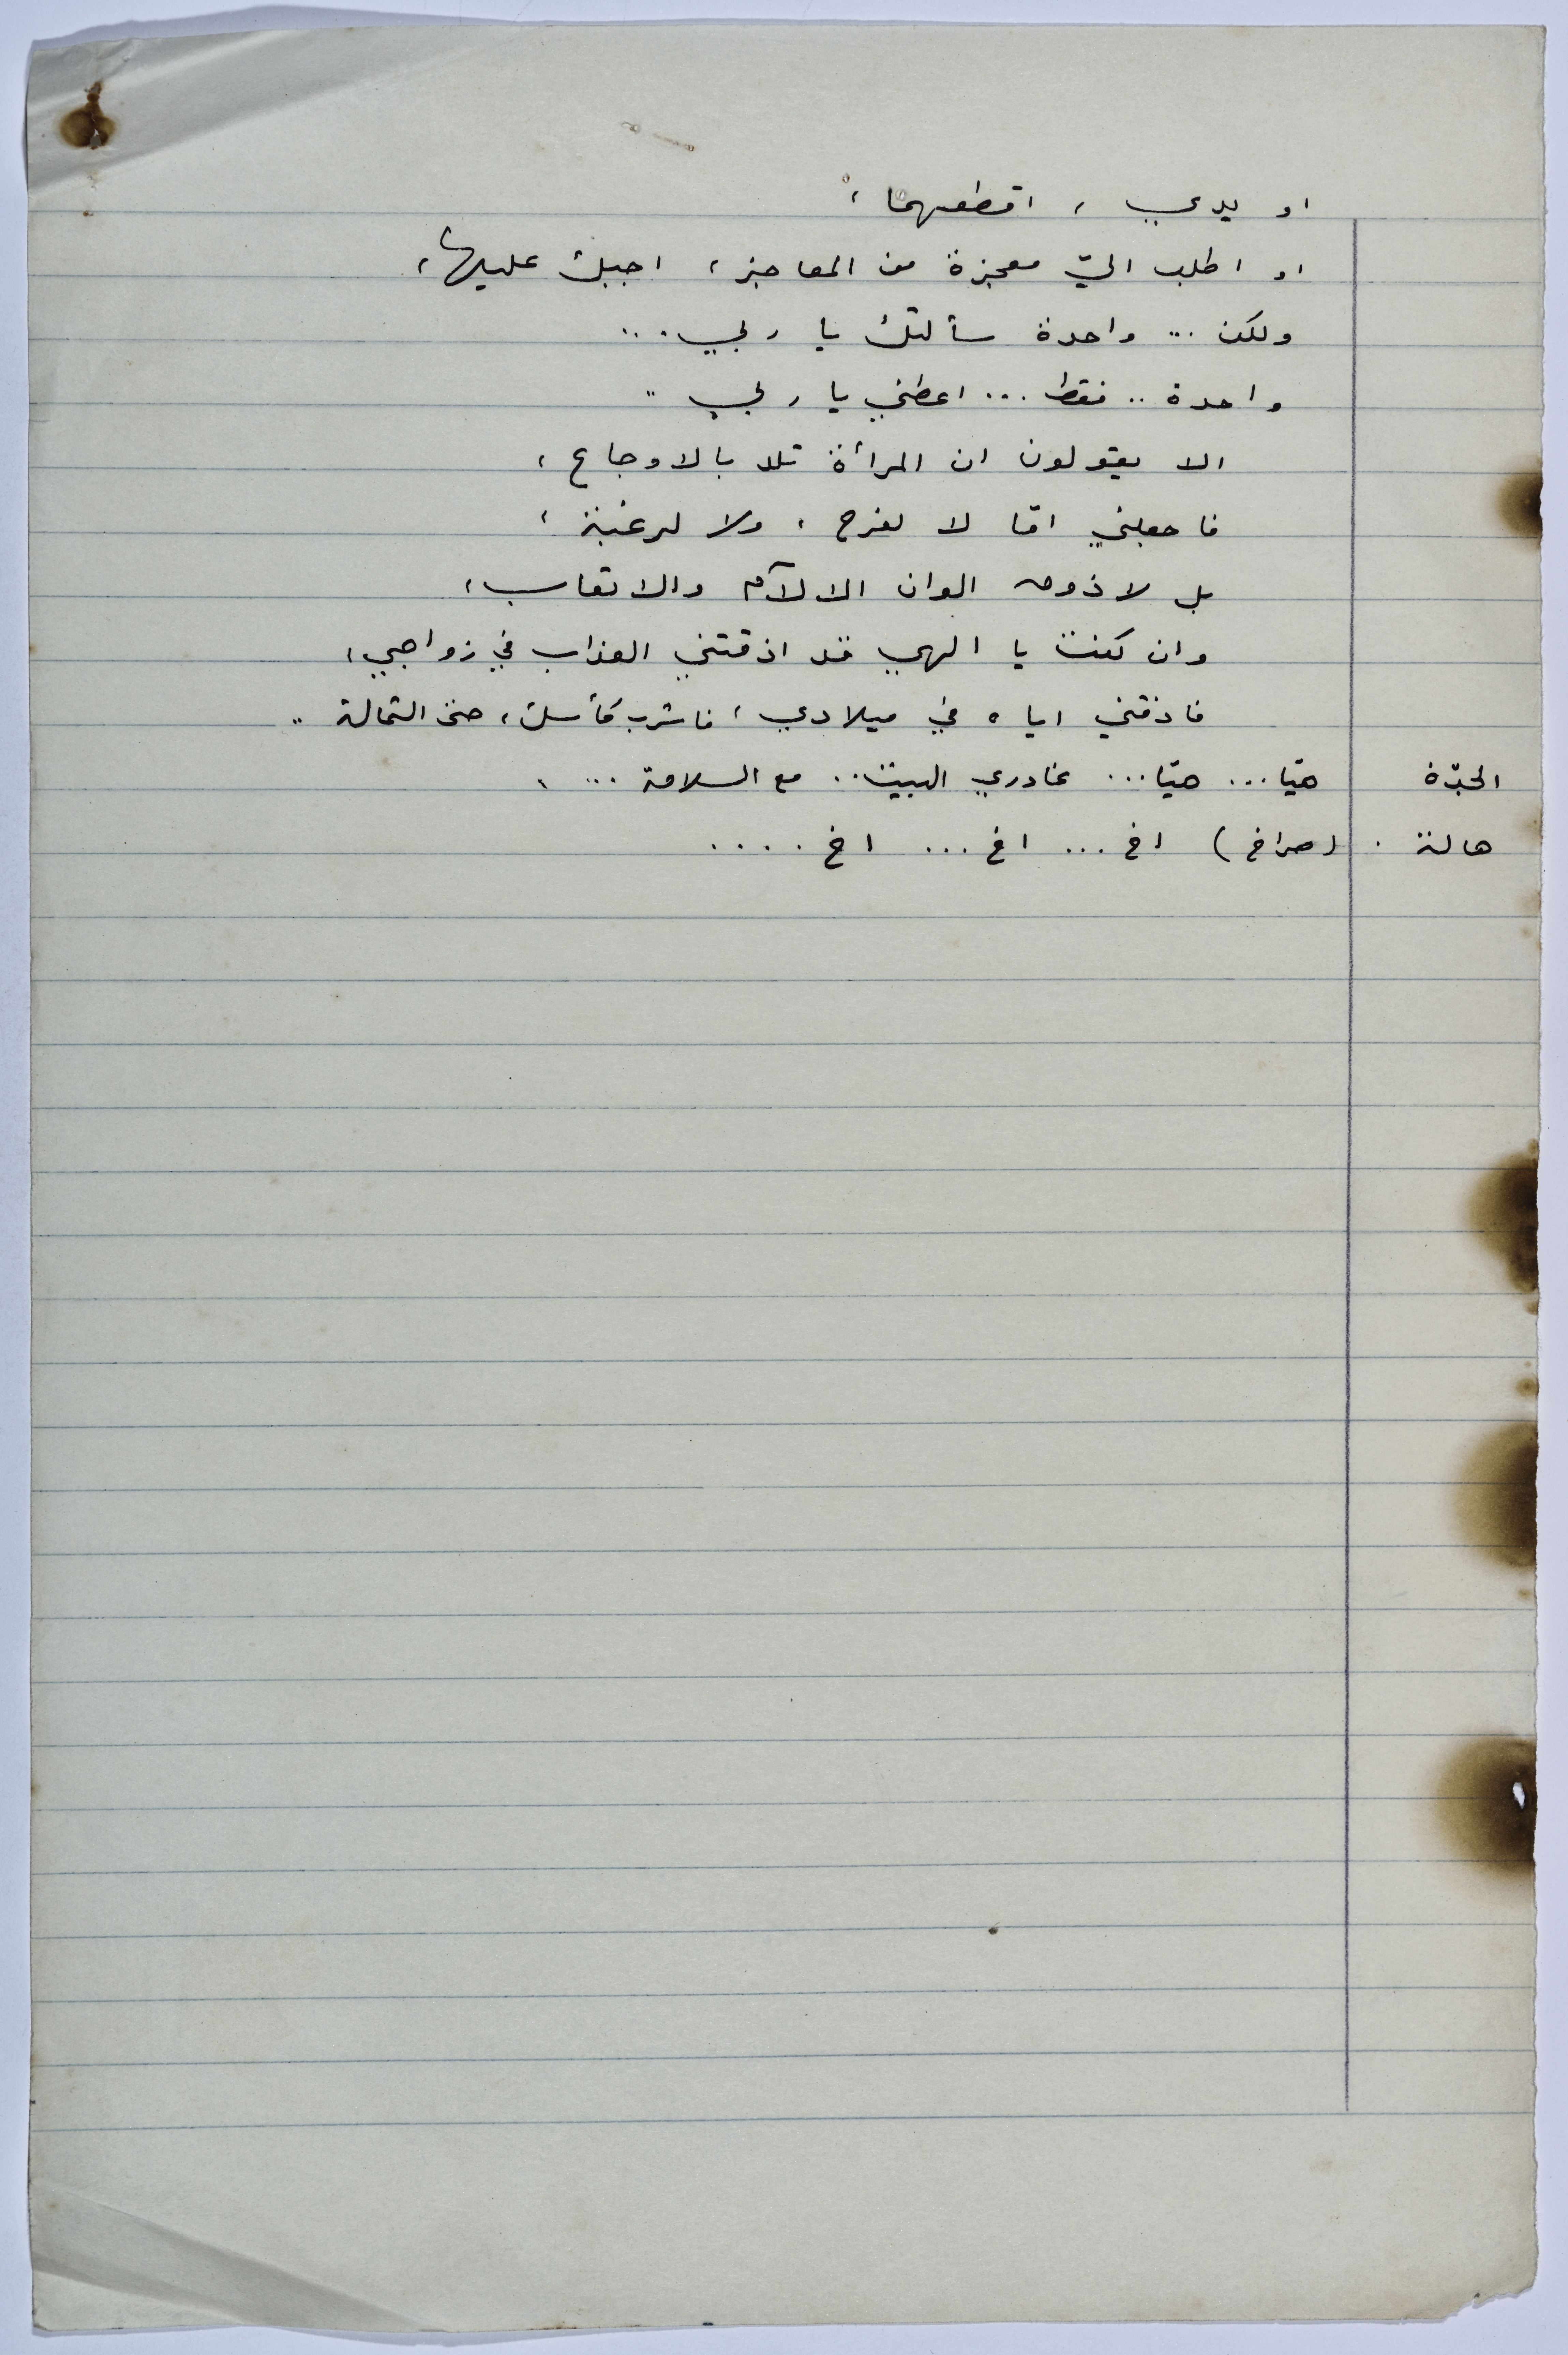 او يدي ، اقطعهما ،
او اطلب اليّ معجزة من المعاجز ، اجبك عليها ،
ولكن ... واحدة سألتك يا ربي ...
واحدة .. فقط ... اعطني يا ربي ..
الا يقولون ان المرأة تلد بالاوجاع ،
فاجعلني امّا لا لفرح ، ولا لرغبة ،
بل لاذوق الوان الالآم والاتعاب ،
وان كنت يا الهي قد اذقتني العذاب في زواجي ،
فاذقني اياه في ميلادي ، فاشرب كأسك ، حتى الثمالة ..
الجدّة هيّا ... هيّا ... غادري البيت .. مع السلامة ...
هالة . (صراخ) اخ ... اخ ... اخ ....